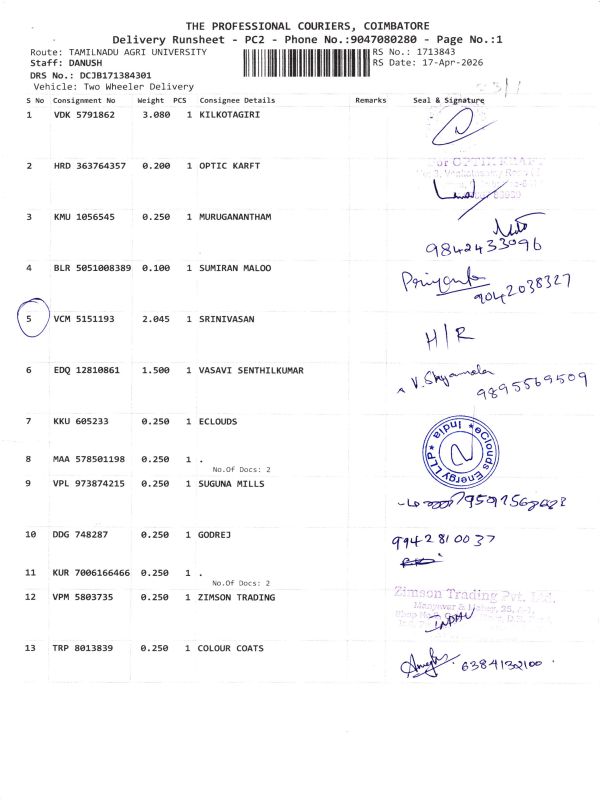 THE PROFESSIONAL COURIERS, COIMBATORE
Delivery Runsheet - PC2 - Phone No.:9047080280 - Page No.:1
Route: TAMILNADU AGRI UNIVERSITY RS No.: 1713843
Staff: DANUSH RS Date: 17-Apr-2026
DRS No.: DCJB171384301
Vehicle: Two Wheeler Delivery
S No Consignment No Weight PCS Consignee Details Remarks Seal & Signature
1 VDK 5791862 3.080 1 KILKOTAGIRI
2 HRD 363764357 0.200 1 OPTIC KARFT
For OPTIK KRAFT
3 KMU 1056545 0.250 1 MURUGANANTHAM
9842433096
4 BLR 5051008389 0.100 1 SUMIRAN MALOO
Priyanka
9042038327
5 VCM 5151193 2.045 1 SRINIVASAN
H/R
6 EDQ 12810861 1.500 1 VASAVI SENTHILKUMAR
V. Shyamala
9895569509
7 KKU 605233 0.250 1 ECLOUDS
eClouds Energy LLP * India *
8 MAA 578501198 0.250 1 .
No.Of Docs: 2
9 VPL 973874215 0.250 1 SUGUNA MILLS
10 DDG 748287 0.250 1 GODREJ
9942810037
11 KUR 7006166466 0.250 1 .
No.Of Docs: 2
12 VPM 5803735 0.250 1 ZIMSON TRADING
Zimson Trading Pvt. Ltd.
13 TRP 8013839 0.250 1 COLOUR COATS
6384132100